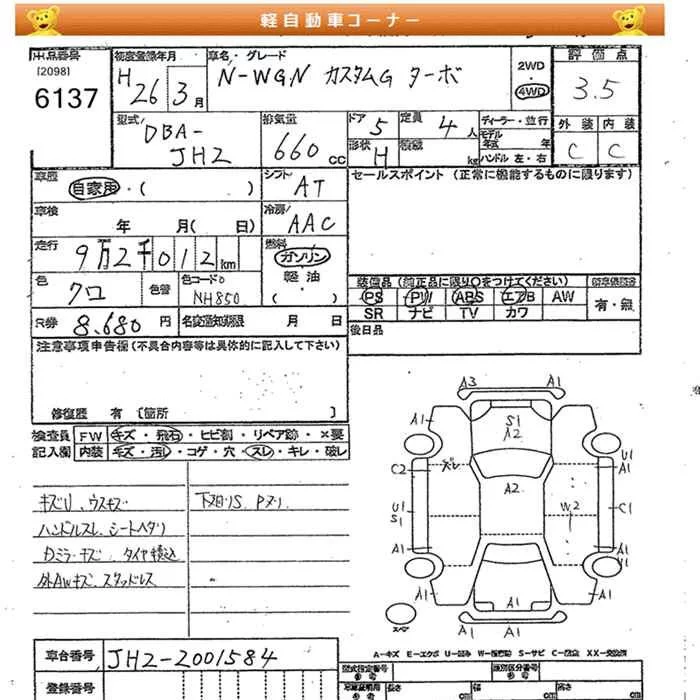 軽自動車コーナー
出品番号
[2098]
6137
初度登録年月
H 26 3月
車名・グレード
N-WGN カスタムG ターボ
2WD
4WD
評価点
3.5
型式
DBA-
JH2
排気量
660 cc
ドア 5
定員 4 人
形状 H
積載 kg
ディーラー・並行
モデル年式 年
ハンドル 左・右
外装 内装
C C
車歴
自家用・( )
シフト
AT
セールスポイント (正常に機能するものに限ります)
車検
年 月( 日)
冷房
AAC
走行
9万2千012km
燃料
ガソリン
軽油
・( )
色
クロ
色替
色コードNo
NH850
装備品 (純正品に限り〇をつけてください)
PS PW ABS エアB AW
SR ナビ TV カワ
有・無
R券
8,680 円
名変通知期限 月 日
後日品
注意事項申告欄 (不具合内容等は具体的に記入して下さい)
修復歴 有 [箇所 ]
検査員 FW キズ・飛石・ヒビ割・リペア跡・×要
記入欄 内装 キズ・汚れ・コゲ・穴・スレ・キレ・破レ
キズU、ウスキズ
ハンドルスレ、シートヘタリ
Dミラーキズ タイヤ積込
外AWキズ、スタッドレス
下廻りS、Pヌリ
A3 A1
A1
S1
A2
U1
A1
C2
ズレ
A2
U1
S1
W2
C1
A1
A1
A1
A1
A1
A1 A1
スペア
A-キズ E-エクボ U-凹み W-補修跡 S-サビ C-腐食 XX-交換済
車台番号
JH2-2001584
登録番号
型式指定番号
類別区分番号
長さ cm
幅 cm
高さ cm